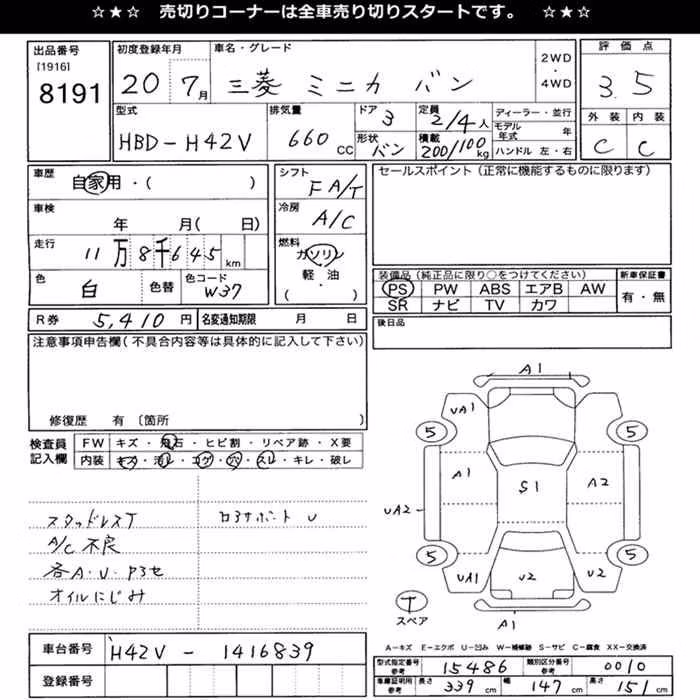 ☆★☆ 売切りコーナーは全車売り切りスタートです。 ☆★☆
出品番号
[1916]
8191
初度登録年月
20 7月
車名・グレード
三菱 ミニカ バン
2WD
・
4WD
評価点
3.5
外装 内装
C C
型式
HBD-H42V
排気量
660 CC
ドア
3
形状
バン
定員
2/4人
積載
200/100 kg
ディーラー・並行
モデル年式 年
ハンドル 左・右
車歴
自家用・( )
車検
年 月( 日)
走行
11万8千645km
色
白
色替
色コード
W37
シフト
F A/T
冷房
A/C
燃料
ガソリン
軽・油
( ・ )
セールスポイント(正常に機能するものに限ります)
装備品(純正品に限り○をつけてください)
PS PW ABS エアB AW
SR ナビ TV カワ
新車保証書
有・無
R券 5,410円
名変通知期限 月 日
後日品
注意事項申告欄(不具合内容等は具体的に記入して下さい)
修復歴 有〔箇所 〕
検査員
記入欄
FW キズ・飛石・ヒビ割・リペア跡・X要
内装 キズ・汚レ・コゲ・穴・スレ・キレ・破レ
スタッドレスT
A/C不良
各A・U・P3セ
オイルにじみ
ロアサポート U
A1
UA1
5
5
A1
S1
A2
UA2
5
5
UA1
U2
U2
T
スペア
A1
A-キズ E-エクボ U-凹み W-補修跡 S-サビ C-腐食 XX-交換済
車台番号
H42V - 1416839
登録番号
型式指定番号
参考
15486
類別区分番号
参考
0010
車庫証明用
参考
長さ 339 cm
幅 147 cm
高さ 151 cm